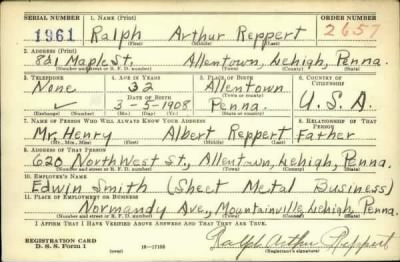 SERIAL NUMBER 1. NAME (Print) ORDER NUMBER
1961 Ralph Arthur Reppert 2657
(First) (Middle) (Last)
2. ADDRESS (Print)
821 Maple St, Allentown, Lehigh, Penna.
(Number and street or R. F. D. number) (Town) (County) (State)
3. TELEPHONE 4. AGE IN YEARS 5. PLACE OF BIRTH 6. COUNTRY OF CITIZENSHIP
None 32 Allentown
DATE OF BIRTH (Town or county)
✓ 3-5-1908 Penna. U.S.A.
(Exchange) (Number) (Mo.) (Day) (Yr.) (State or country)
7. NAME OF PERSON WHO WILL ALWAYS KNOW YOUR ADDRESS 8. RELATIONSHIP OF THAT PERSON
Mr. Henry Albert Reppert Father
(Mr., Mrs., Miss) (First) (Middle) (Last)
9. ADDRESS OF THAT PERSON
620 North West St, Allentown, Lehigh, Penna.
(Number and street or R. F. D. number) (Town) (County) (State)
10. EMPLOYER'S NAME
Edwin Smith (Sheet Metal Business)
11. PLACE OF EMPLOYMENT OR BUSINESS
Normandy Ave, Mountainville Lehigh, Penna.
(Number and street or R. F. D. number) (Town) (County) (State)
I AFFIRM THAT I HAVE VERIFIED ABOVE ANSWERS AND THAT THEY ARE TRUE.
REGISTRATION CARD
D. S. S. Form 1 (over) 16-17105 Ralph Arthur Reppert
(Registrant's signature)